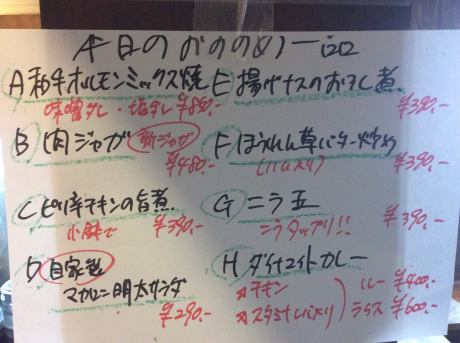 本日のおすすめ一品
A 和牛ホルモンミックス焼
味噌ダレ・塩ダレ ¥850.-
B 肉ジャガ 新ジャガ
¥480.-
C ピリ辛チキンの旨煮
小鉢で ¥390.-
D 自家製
マカロニ明太サラダ
¥290.-
E 揚げナスのおろし煮
¥390.-
F ほうれん草バター炒め
(ハム入り) ¥390.-
G ニラ玉
ニラタップリ!! ¥390.-
H ダイナマイトカレー
チキン ルー ¥400.-
スタミナ ライス ¥600.-